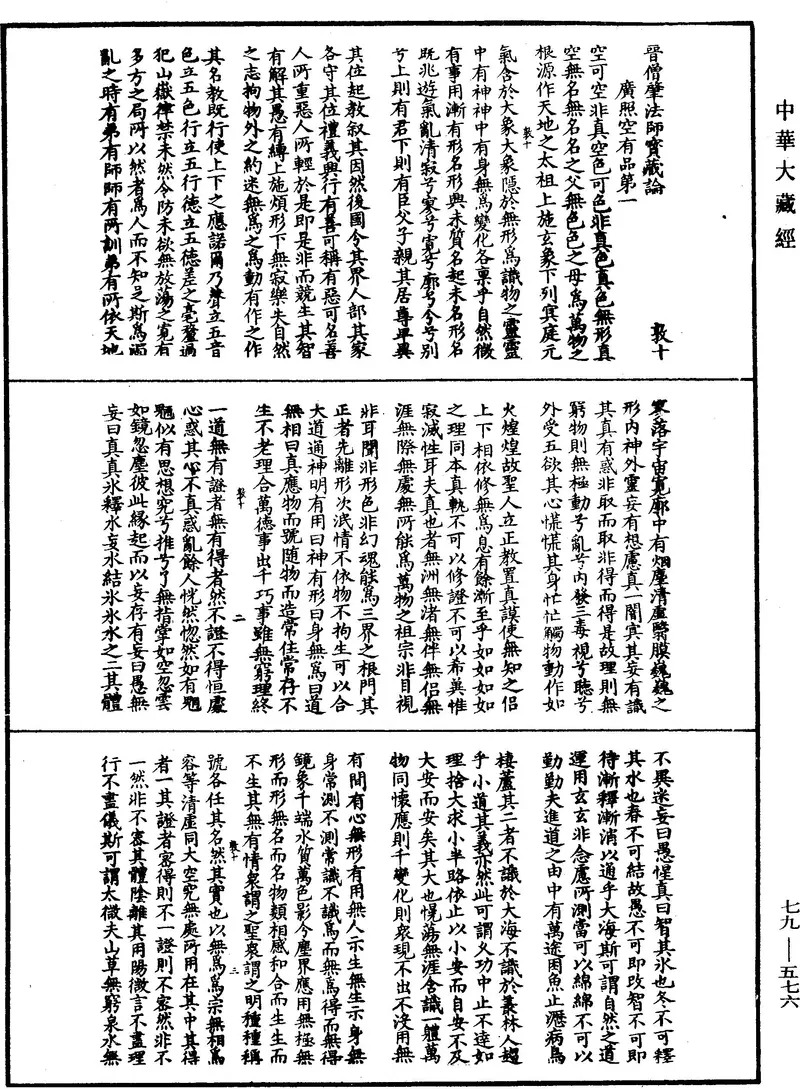 中華大藏經
七九——五七六
晉僧肇法師寶藏論　敦十
廣照空有品第一
空可空非真空色可色非真色真色無形真
空無名無名名之父無色色之母為萬物之
根源作天地之太祖上施玄象下列冥庭元
氣含於大象大象隱於無形為識物之靈靈
中有神神中有身無為變化各稟乎自然微
有事用漸有形名形興未質名起未名形名
既兆遊氣亂清寂兮寥兮寬兮廓兮分兮別
兮上則有君下則有臣父子親其居尊卑異
其位起教敘其因然後國分其界人部其家
各守其位禮義興行有善可稱有惡可名善
人所重惡人所輕於是即是非而競生其智
有解其愚有縛上施煩形下無寂樂失自然
之志拘物外之約迷無為之為動有作之作
其名教既行使上下之應諾爾乃聲立五音
色立五色行立五行德立五德差之毫釐過
犯山嶽律禁未然令防未欲無放蕩之寬有
多方之局所以然者為人而不知足斯為
亂之時有弟有師師有所訓弟有所依天地
寥落宇宙寬廓中有烟塵清虛翳膜巍巍之
形內神外靈妄有想慮真一闇冥其妄有識
其真有惑非取而取非得而得是故理則無
窮物則無極動兮亂兮內發三毒視兮聽兮
外受五欲其心慌慌其身忙忙觸物動作如
火煌煌故聖人立正教置真謨使無知之侶
上下相依修無為息有餘漸至乎如如如如
之理同本真軌不可以修證不可以希冀惟
寂滅性耳夫真也者無洲無渚無伴無侶無
涯無際無處無所能為萬物之祖宗非目視
非耳聞非形色非幻魂能為三界之根門其
正者先離形次泯情不依物不拘生可以合
大道通神明有用曰神有形曰身無為曰道
無相曰真應物而號隨物而造常住常存不
生不老理合萬德事出千巧事雖無窮理終
一道無有證者無有得者然不證不得恒處
心惑其心不真惑亂餘人恍然惚然如有魍
魎似有思想究兮推兮了無指掌如空忽雲
如鏡忽塵彼此緣起而以妄存有妄曰愚無
妄曰真真冰釋水妄水結冰冰水之二其體
不異迷妄曰愚惺真曰智其冰也冬不可釋
其水也春不可結故愚不可即改智不可即
待漸釋漸消以通乎大海斯可謂自然之道
運用玄玄非念慮所測當可以綿綿不可以
勤勤夫進道之由中有萬途困魚止濼病鳥
棲蘆其二者不識於大海不識於叢林人趨
乎小道其義亦然此可謂久功中止不達如
理捨大求小半路依止以小安而自安不及
大安而安矣其大也愰蕩無涯含識一體萬
物同懷應則千變化則眾現不出不沒用無
有間有心無形有用無人示生無生示身無
身常測不測常識不識為而無為得而無得
鏡象千端水質萬色影分塵界應用無極無
形而形無名而名物類相感和合而生生而
不生其無有情眾謂之聖眾謂之明種種稱
號各任其名然其實也以無為為宗無相為
容等清虛同大空究無處所用在其中其得
者一其證者密得則不一證則不密然非不
一然非不密其體陰離其用陽微言不盡理
行不盡儀斯可謂太微夫山草無窮泉水無